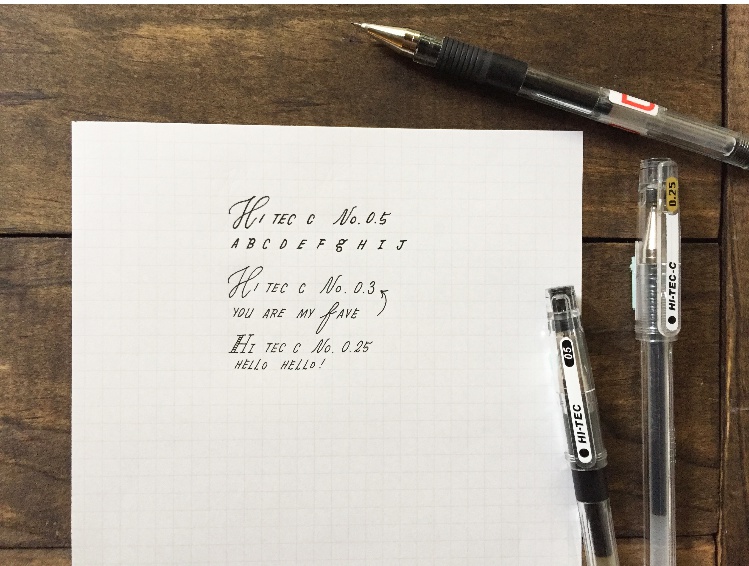 Hi TEC C No. 0.5
A B C D E F g H I J
Hi TEC C No. 0.3
YOU ARE MY fAVE
Hi TEC C No. 0.25
HELLO HELLO!
0.25
HI-TEC-C
05
HI-TEC